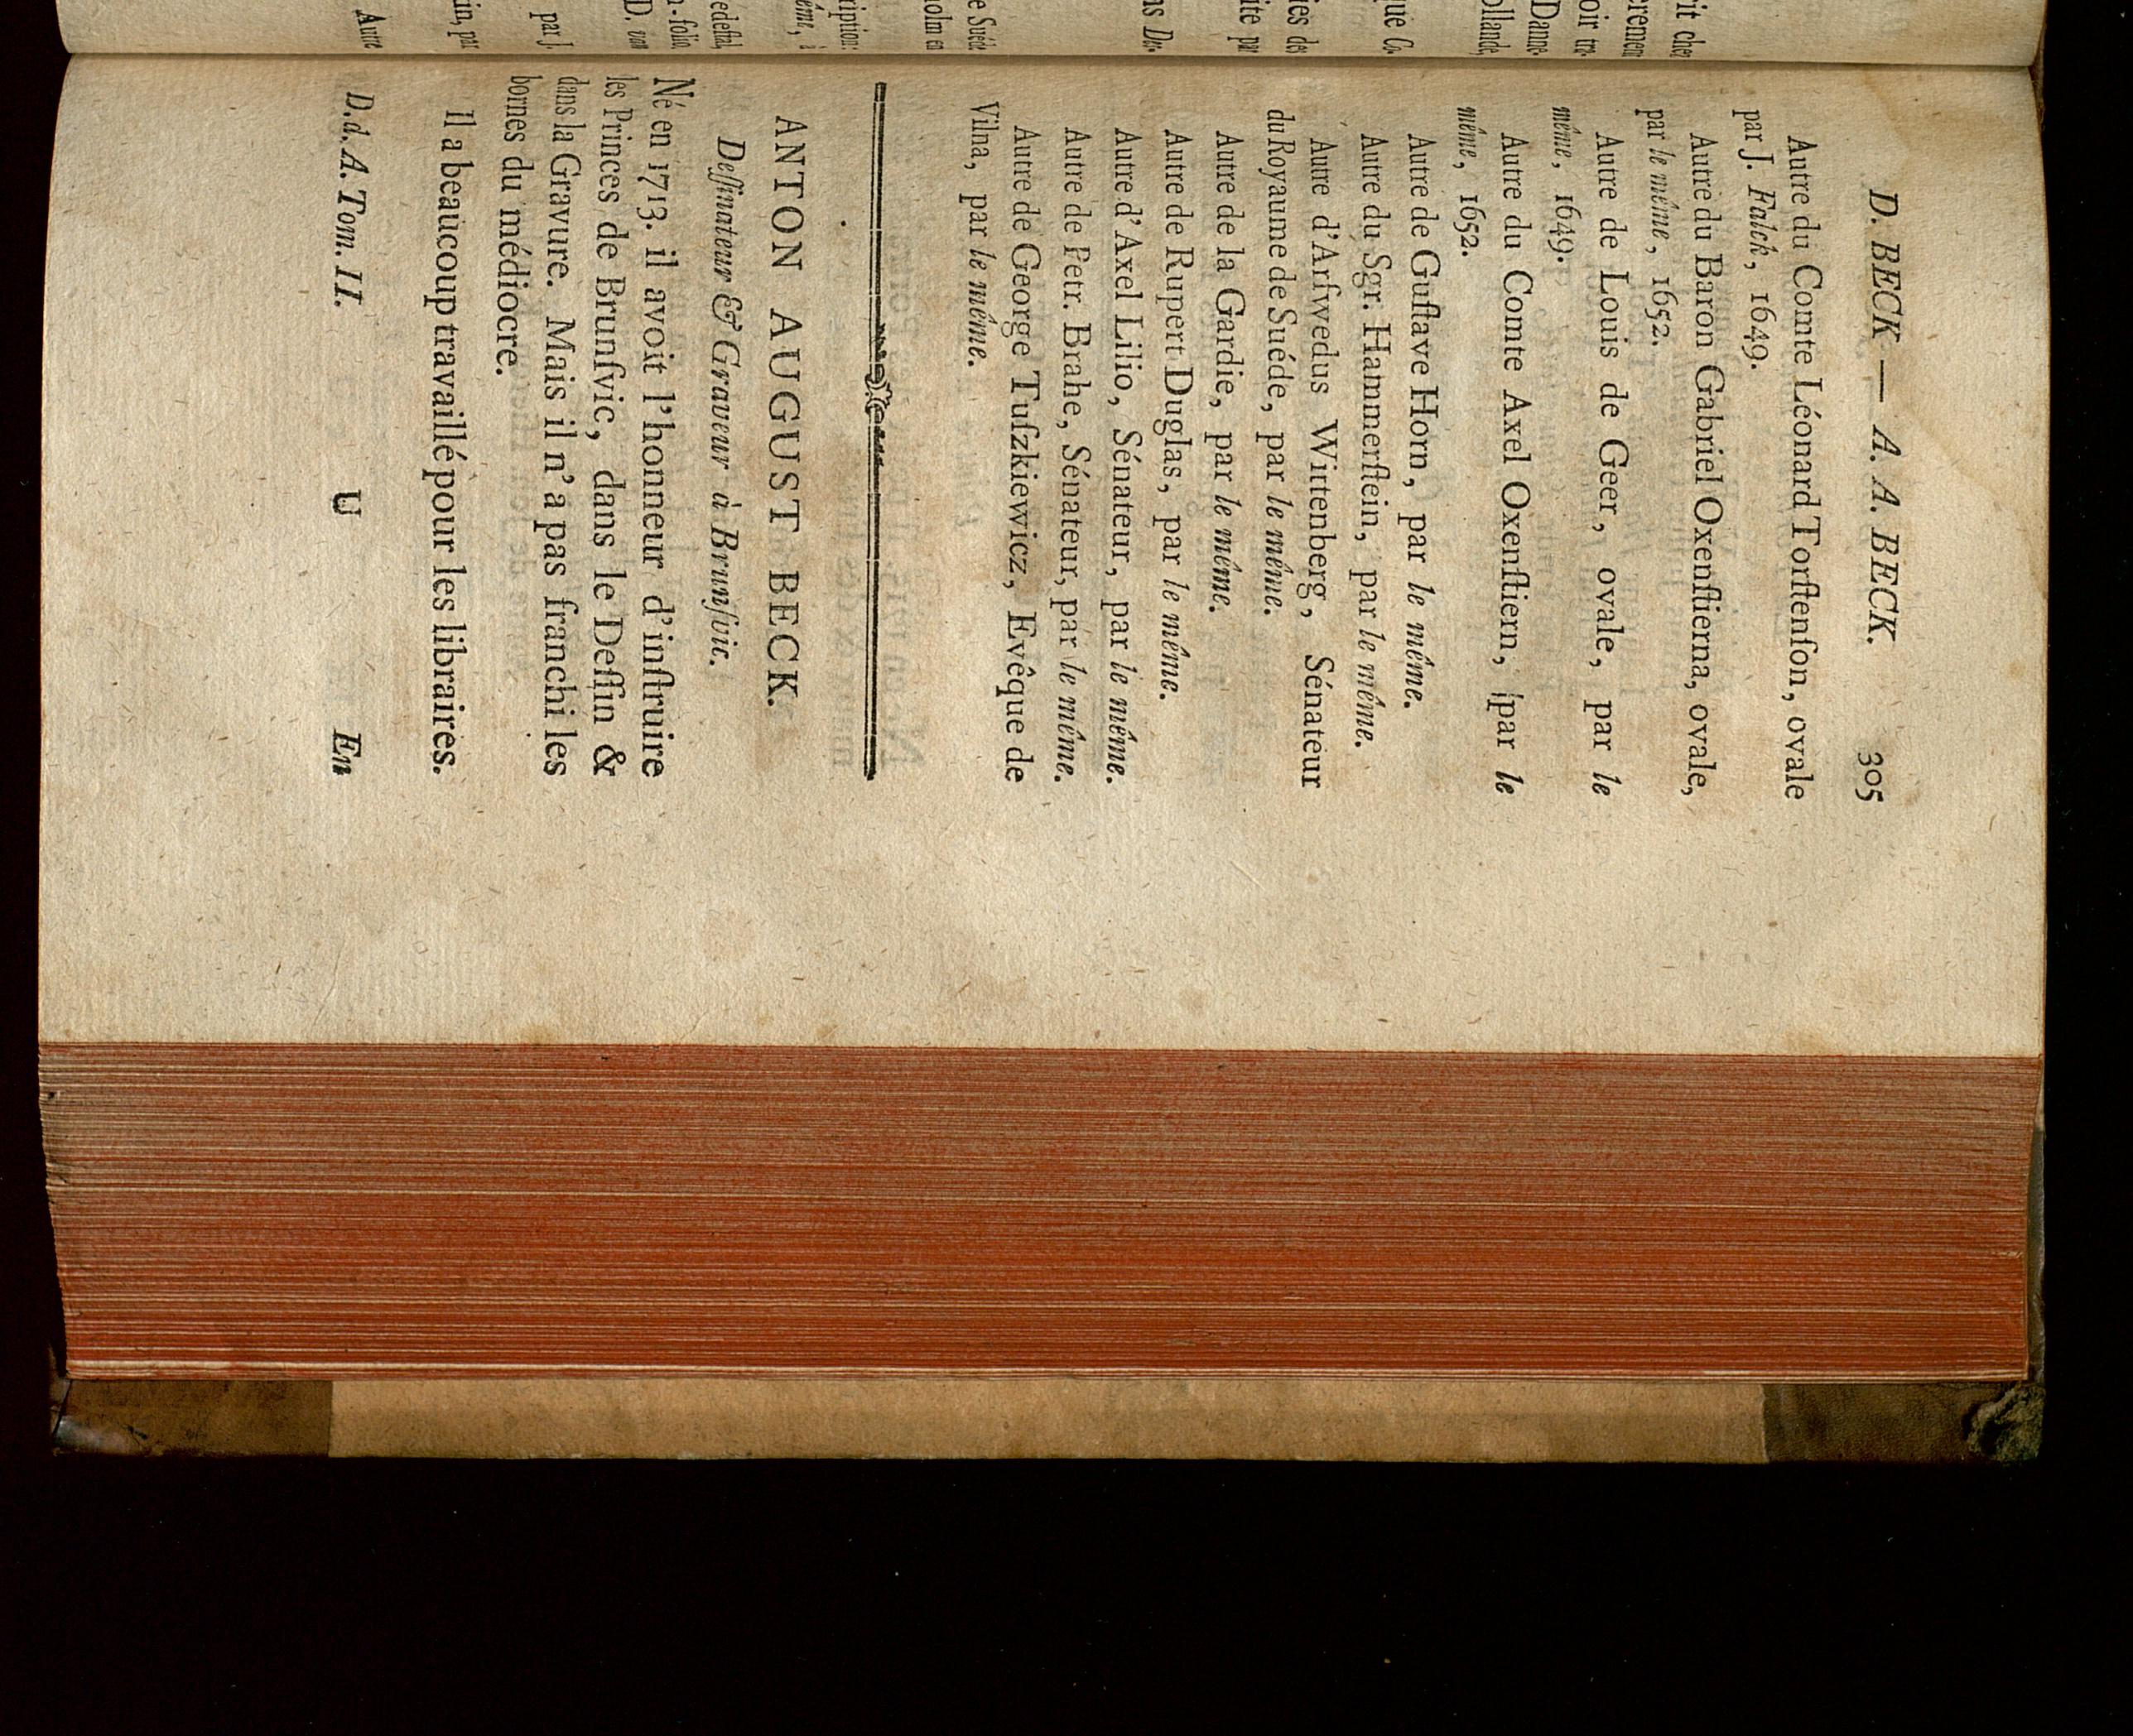 D. BECK — A. A. BECK. 305
Autre du Comte Léonard Torſtenſon, ovale
par J. Falck, 1649.
Autre du Baron Gabriel Oxenſtierna, ovale,
par le même, 1652.
Autre de Louis de Geer, ovale, par le
même, 1649.
Autre du Comte Axel Oxenſtiern, par le
même, 1652.
Autre de Guſtave Horn, par le même.
Autre du Sgr. Hammerſtein, par le même.
Autre d'Arſvvedus Wirtenberg, Sénateur
du Royaume de Suéde, par le même.
Autre de la Gardie, par le même.
Autre de Rupert Duglas, par le même.
Autre d'Axel Lilio, Sénateur, par le même.
Autre de Petr. Brahe, Sénateur, par le même.
Autre de George Tuſzkiewicz, Evêque de
Vilna, par le même.
ANTON AUGUST BECK.
Deſſinateur & Graveur à Brunſvic.
Né en 1713. il avoit l'honneur d'inſtruire
les Princes de Brunſvic, dans le Deſſin &
dans la Gravure. Mais il n'a pas franchi les
bornes du médiocre.
Il a beaucoup travaillé pour les libraires.
D. d. A. Tom. II. U En